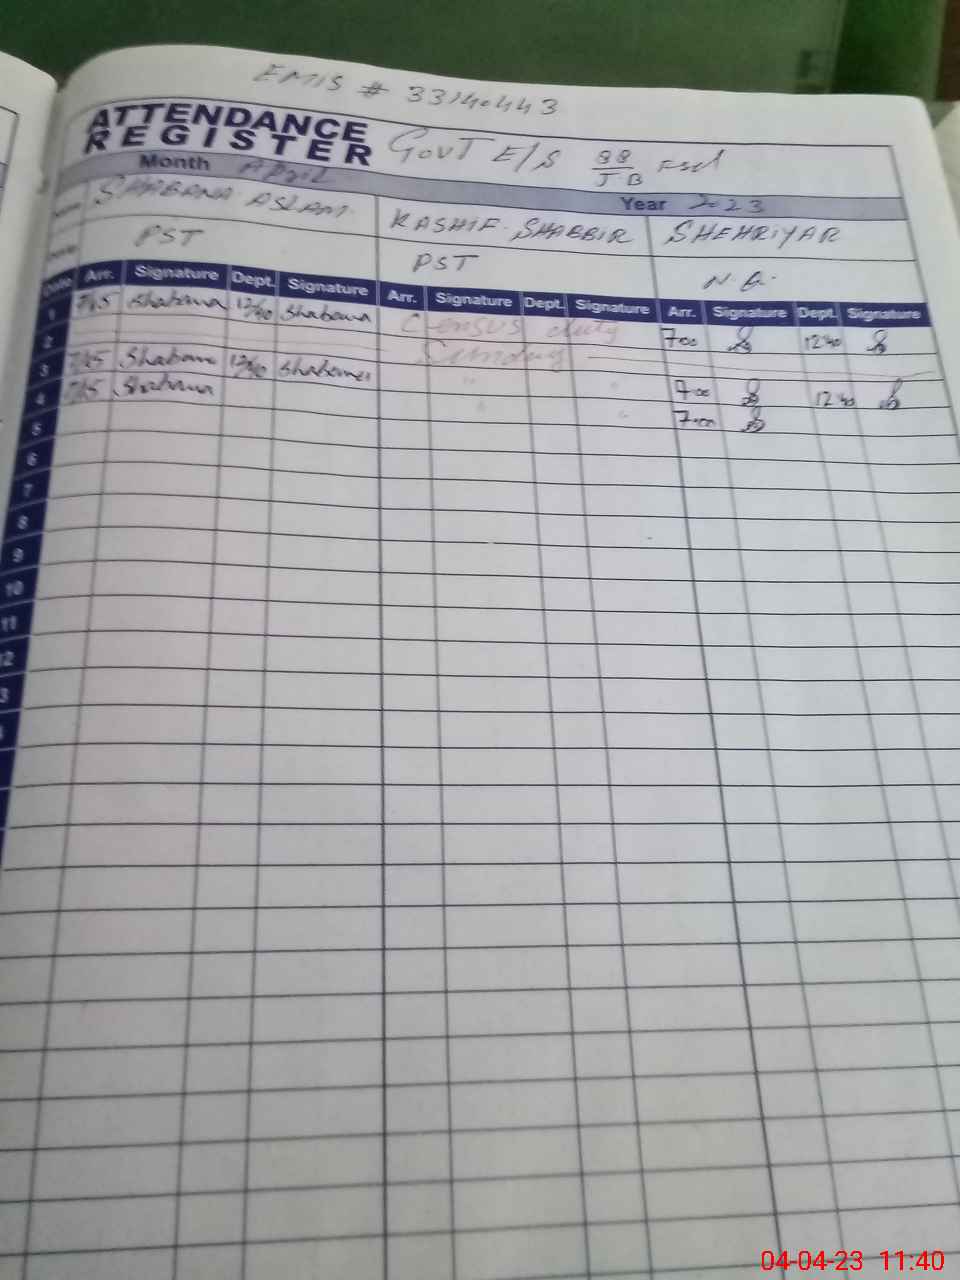 EMIS # 33140443
ATTENDANCE
REGISTER Govt E/S 88 J.B Fsd
Month April Year 2023
SHABANA ASLAM KASHIF SHABBIR SHEHRIYAR
PST PST
Date Arr. Signature Dept. Signature Arr. Signature Dept. Signature Arr. Signature Dept. Signature
1 7:45 Shabana 12:40 Shabana Census duty 7:00 12:40
2 Sunday
3 7:45 Shabana 12:40 Shabana " " 7:00 12:40
4 7:45 Shabana " " 7:00
5
6
7
8
9
10
11
12
3
04-04-23 11:40